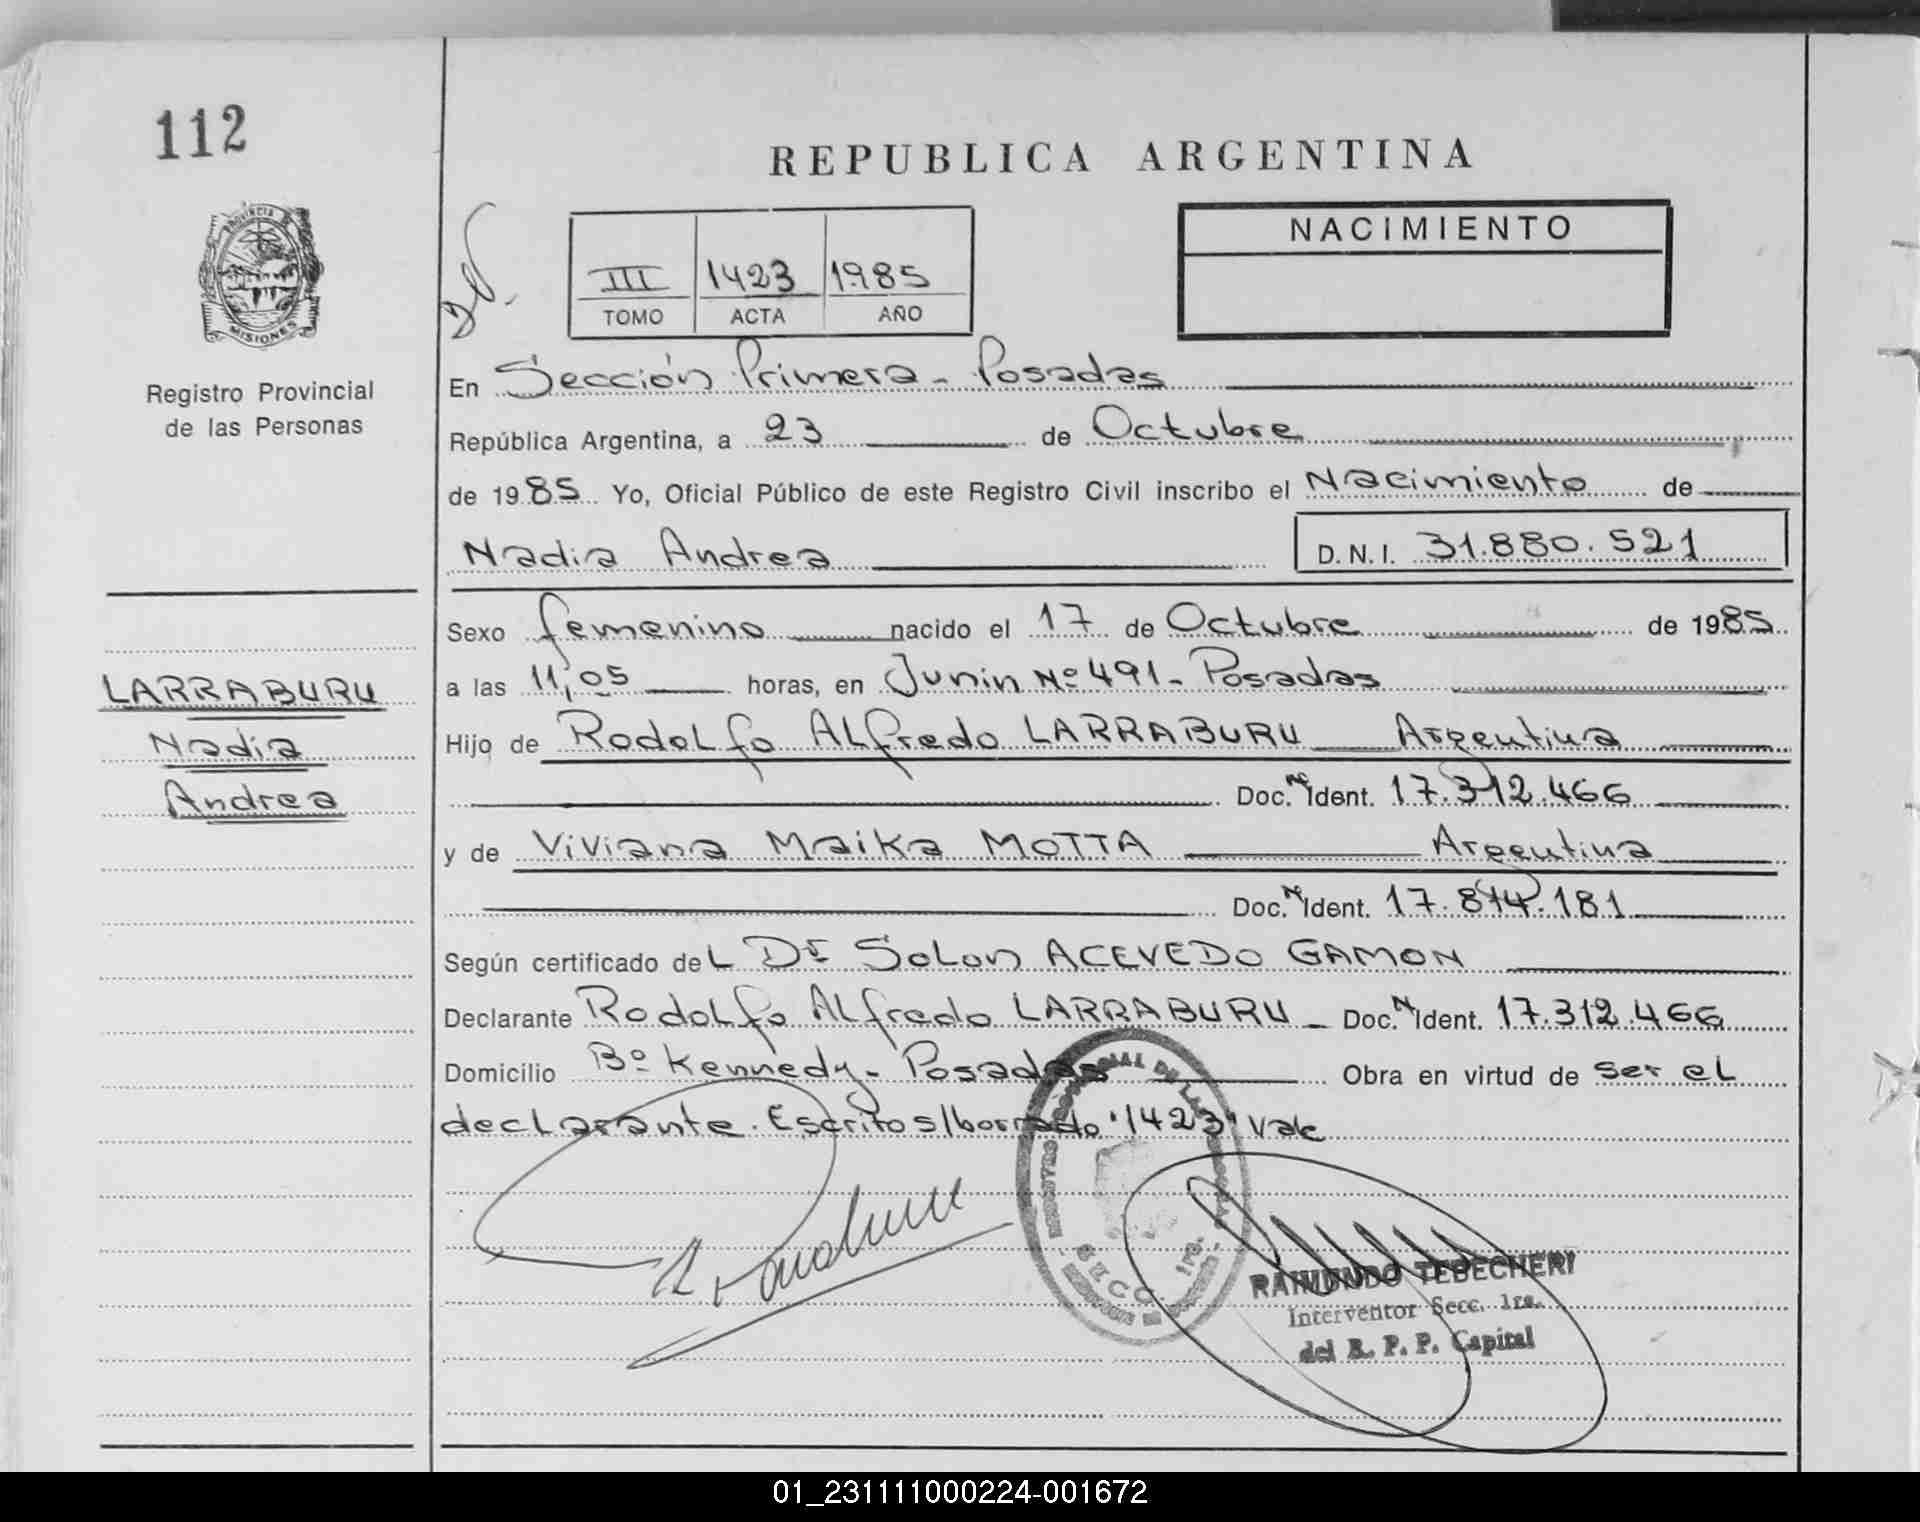 112
REPUBLICA ARGENTINA
PROVINCIA DE
MISIONES
Registro Provincial
de las Personas
III 1423 1985
TOMO ACTA AÑO
NACIMIENTO
En Sección Primera - Posadas
República Argentina, a 23 de Octubre
de 1985 Yo, Oficial Público de este Registro Civil inscribo el Nacimiento de
Nadia Andrea D.N.I. 31.880.521
Sexo femenino nacido el 17 de Octubre de 1985
LARRABURU
Nadia
Andrea
a las 11,05 horas, en Junin Nº 491 - Posadas
Hijo de Rodolfo Alfredo LARRABURU Argentina
Doc. Nº Ident. 17.312.466
y de Viviana Maika MOTTA Argentina
Doc. Nº Ident. 17.874.181
Según certificado del Dr Solon ACEVEDO GAMON
Declarante Rodolfo Alfredo LARRABURU - Doc. N Ident. 17.312.466
Domicilio Bº Kennedy - Posadas Obra en virtud de ser el
declarante. Escrito s/borrado "1423" Vale
SECC. 1ra.
RAIMUNDO TEDECHERI
Interventor Secc. 1ra.
del R. P. P. Capital
01_231111000224-001672